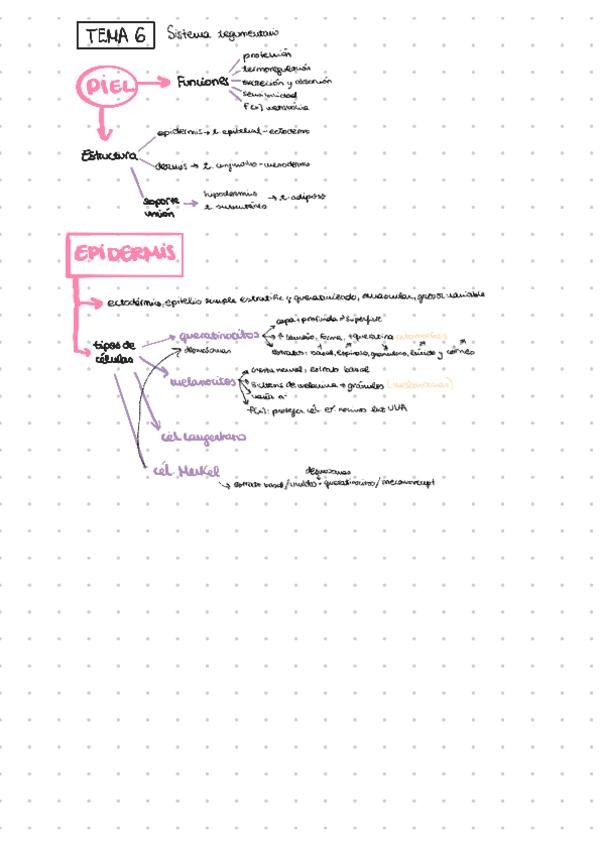 TEMA 6 Sistema tegumentario
PIEL
Funciones
protección
termorregulación
excreción y absorción
sensibilidad
Estructura
epidermis → t. epitelial - ectodermo
dermis → t. conjuntivo - mesodermo
soporte
unión
hipodermis
t. subcutáneo
→ t. adiposo
EPIDERMIS
ectodermo, epitelio simple estratific y queratinizado, avascular, grosor variable
tipos de
células
queratinocitos
capa + profunda → superfic
↑ tamaño, forma, + queratina
estrato: basal, espinoso, granuloso, lúcido y córneo
desmosomas
melanocitos
cresta neural, estrato basal
síntesis de melanina → gránulos (melanosomas)
varía nº
f(n): proteger cél. luz UVA
cél. Langerhans
cél. Merkel
desmosomas
estrato basal / unidos - queratinocitos / mecanorrecept